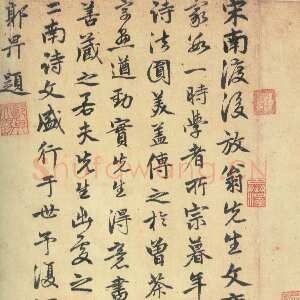 宋南渡後放翁先生文
家為一時學者所宗暮年
詩法圓美蓋傳之於曾茶
遒勁實先生得意書
善藏之若夫先生出處之
二南詩文盛行于世予復
郭畀題
Shufawang.CN